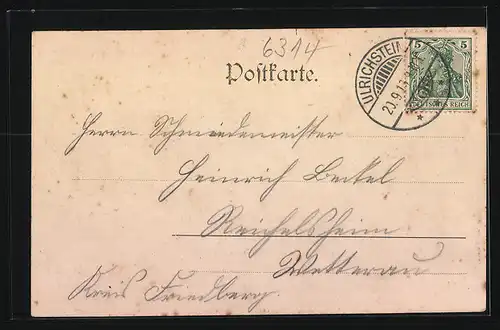 6314
Postkarte.
ULRICHSTEIN
20.9.13
5 5
DEUTSCHES REICH
Herrn Schmiedemeister
Heinrich Beckel
Reichelsheim
Wetterau
Kreis Friedberg.